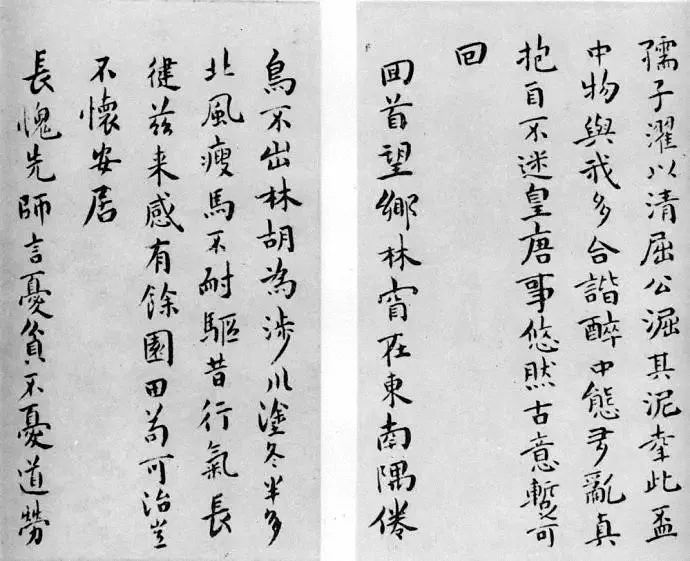 孺子濯以清屈公淈其泥此盃
中物與我多合諧醉中態亂真
抱自不迷皇唐事悠然古意暫可
回
回首望鄉林窅在東南隅倦
鳥不出林胡為涉川塗冬半多
北風瘦馬不耐驅昔行氣長
健茲来感有餘園田苟可治豈
不懷安居
長愧先師言憂貧不憂道勞